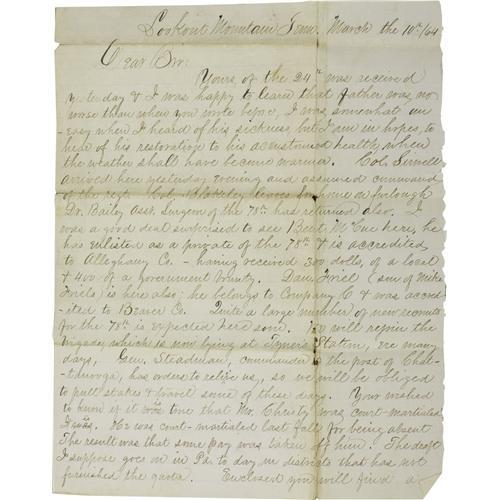 Lookout Mountain Tenn. March the 10th/64
Dear Bro:
Yours of the 24th was received
yesterday & I was happy to learn that father was no
worse than when you wrote before, I was somewhat un
easy when I heard of his sickness but I am in hopes, to
hear of his restoration to his accustomed health, when
the weather shall have become warmer. Col. Sirwell
arrived here yesterday evening and assumed command
of the regt. Col. Blakeley leaves for home on furlough
Dr. Bailey Asst. Surgeon of the 78th has returned also. I
was a good deal surprised to see Bert McCue here, he
has enlisted as a private of the 78th & is accredited
to Alleghany Co. - having received 300 dolls, of a local
& 400 of a government bounty. Dan, Friel (son of Mike
Friels) is here also; he belongs to Company C & was accred
-ited to Beaver Co. Quite a large number of new recruits
for the 78th is expected here soon. We will rejoin the
brigade, which is now lying at Tyner's Station, ere many
days, Gen. Steadman, commander of the post of Chat-
tanooga, has orders to relieve us, so we will be obliged
to pull stakes & travel some of these days. Your wished
to know if it was true that Mr. Christy was court-martialed
It was. He was court-martialed last fall for being absent
The result was that some pay was taken of him. The draft
I suppose goes on in Pa. to day in districts that has not
furnished the quota. Enclosed you will find a